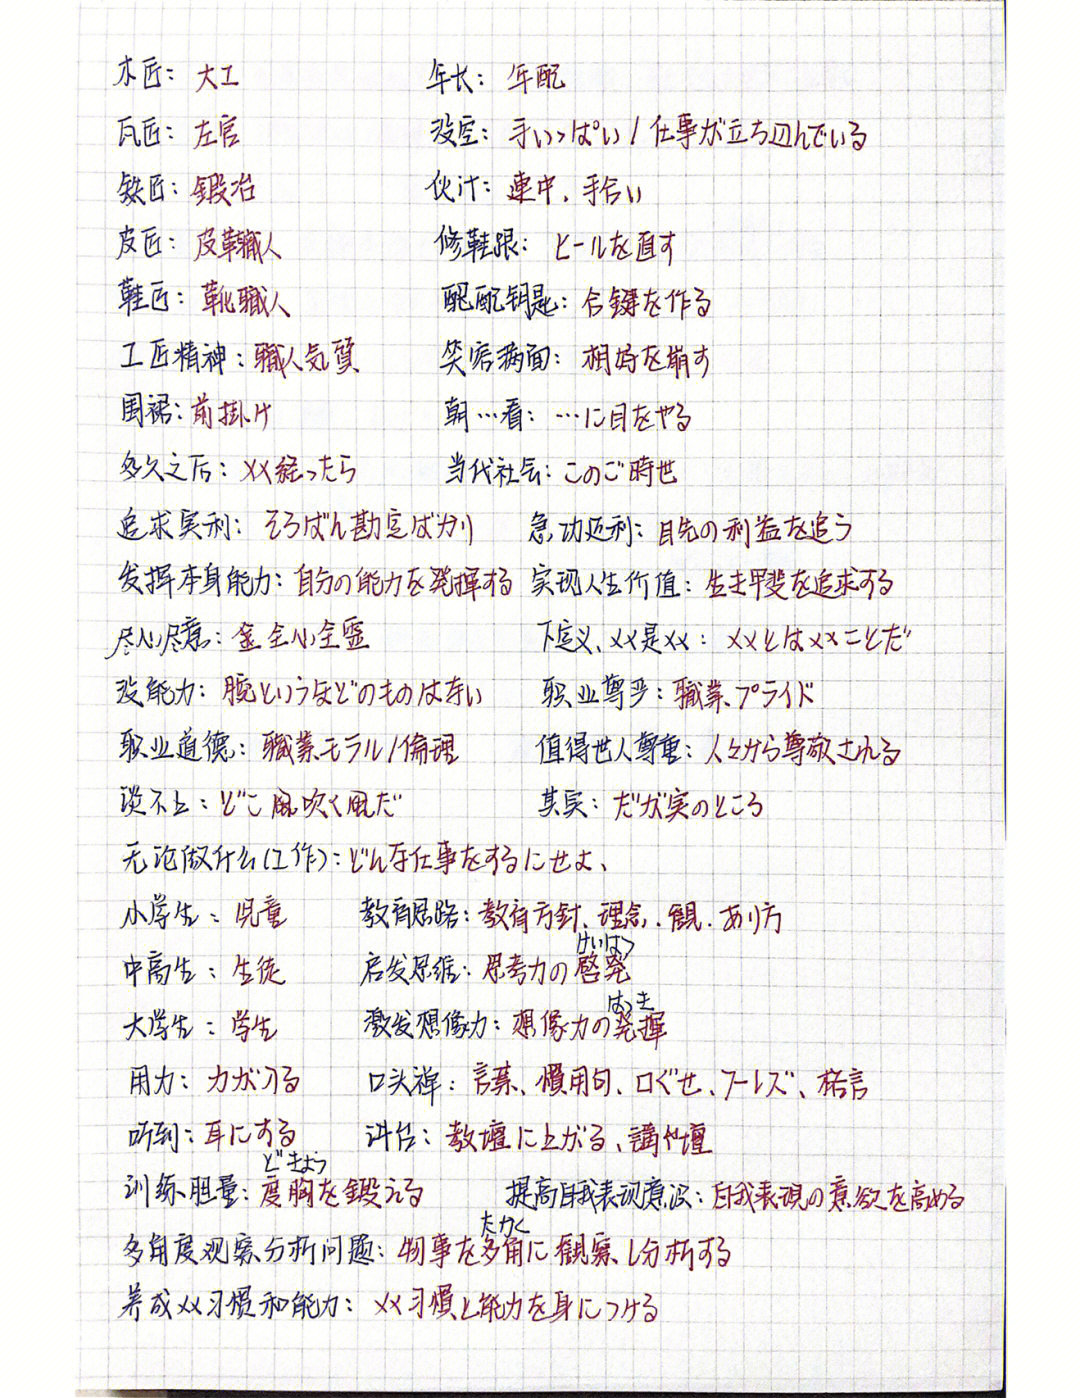 木匠：大工 年长：年配
瓦匠：左官 没空：手いっぱい/仕事が立ち込んでいる
铁匠：鍛冶 伙计：連中、手合い
皮匠：皮革職人 修鞋跟：ヒールを直す
鞋匠：靴職人 配钥匙：合鍵を作る
工匠精神：職人気質 笑容满面：相好を崩す
围裙：前掛け 朝…看：…に目をやる
多久之后：××経ったら 当代社会：このご時世
追求实利：そろばん勘定ばかり 急功近利：目先の利益を追う
发挥本身能力：自分の能力を発揮する 实现人生价值：生き甲斐を追求する
尽心尽意：全心全霊 下定义、××是××：××とは××ことだ
没能力：腕というほどのものはない 职业尊严：職業プライド
职业道德：職業モラル/倫理 值得世人尊重：人々から尊敬される
谈不上：どこ風吹く風だ 其实：だが実のところ
无论做什么(工作)：どんな仕事をするにせよ、
小学生：児童 教育思路：教育方針、理念、観、あり方
けいはつ
中高生：生徒 启发思维：思考力の啓発
はっき
大学生：学生 激发想像力：想像力の発揮
用力：力が入る 口头禅：言葉、慣用句、口ぐせ、フーレズ、格言
听到：耳にする 讲台：教壇に上がる、講や壇
どきょう
训练胆量：度胸を鍛える 提高自我表现意识：自我表現の意欲を高める
たかく
多角度观察分析问题：物事を多角に観察し分析する
养成××习惯和能力：××習慣と能力を身につける